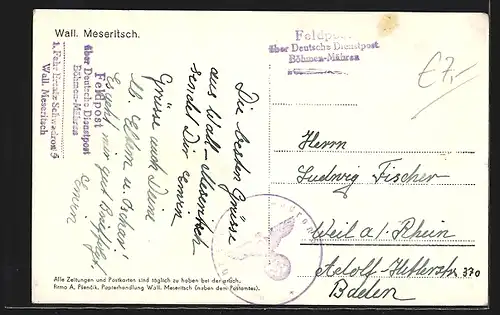 Wall. Meseritsch.
Feldpost
über Deutsche Dienstpost
Böhmen-Mähren
£7,-
1. Fahr Ersatz Schwadron 5
Wall. Meseritsch
Feldpost
über Deutsche Dienstpost
Böhmen-Mähren
Die besten Grüsse
aus Wall-Meseritsch
sendet Dir Erwin
Grüsse auch Deine
lb. Eltern u.
Es geht mir gut Brief folgt
Erwin
Herrn
Ludwig Fischer
Weil a/Rhein
Adolf-Hitlerstr 370
Baden
Alle Zeitungen und Postkarten sind täglich zu haben bei der
Firma A. Papierhandlung Wall. Meseritsch (neben dem Postamtes).